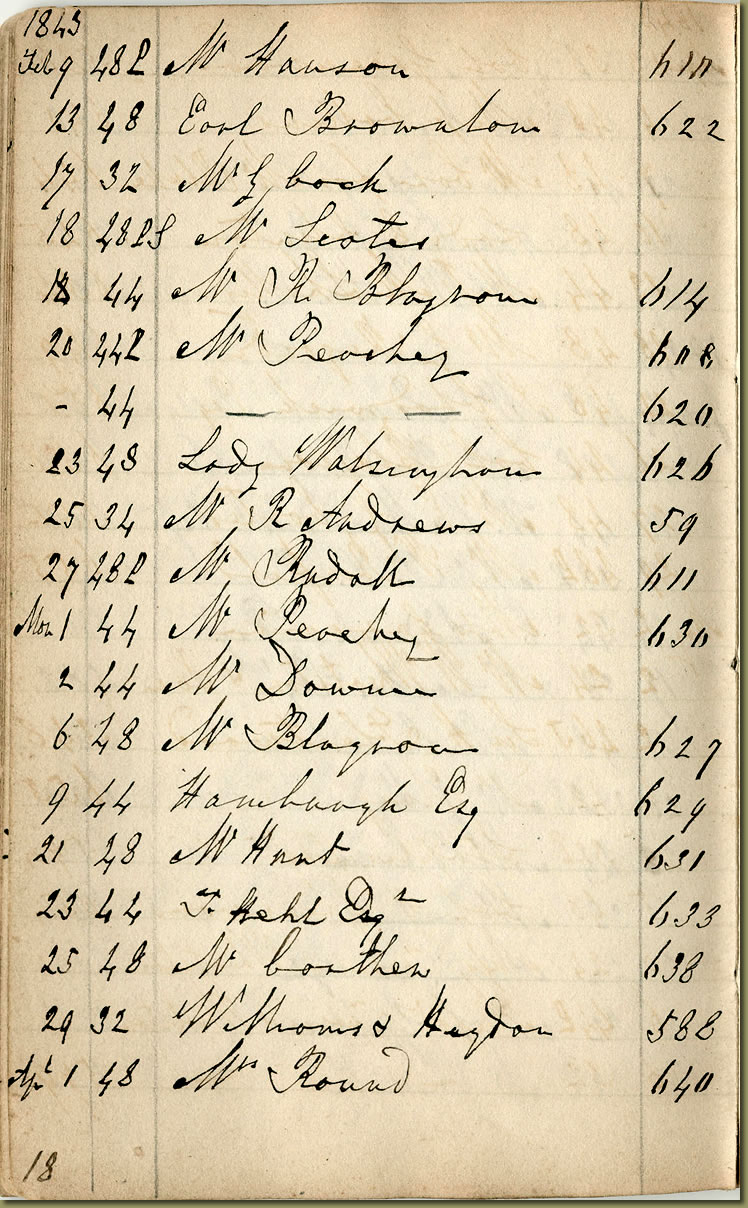 1843
Feb 9 48P Mr Hanson 610
13 48 Earl Brownlow 622
17 32 Mr G Cock
18 48PS Mr Scotes
18 44 Mr R. Blagrove 614
20 44P Mr Peachey 608
- 44 — — 620
23 48 Lady Walsingham 626
25 34 Mr R Andrews 59
27 48P Mr Rudall 611
Mar 1 44 Mr Peachey 630
2 44 Mr Downe
6 48 Mr Blagrove 627
9 44 Hamburgh Esq 629
21 48 Mr Hunt 631
23 44 T. Esqr 633
25 48 Mr 638
29 32 Williams & Haydon 588
Apl 1 48 Mrs Round 640
18